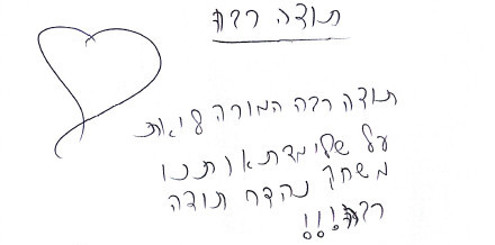 תודה רבה
תודה רבה המורה ליאת
על שלימדת אותנו
משחק נהדר תודה
רבה!!!